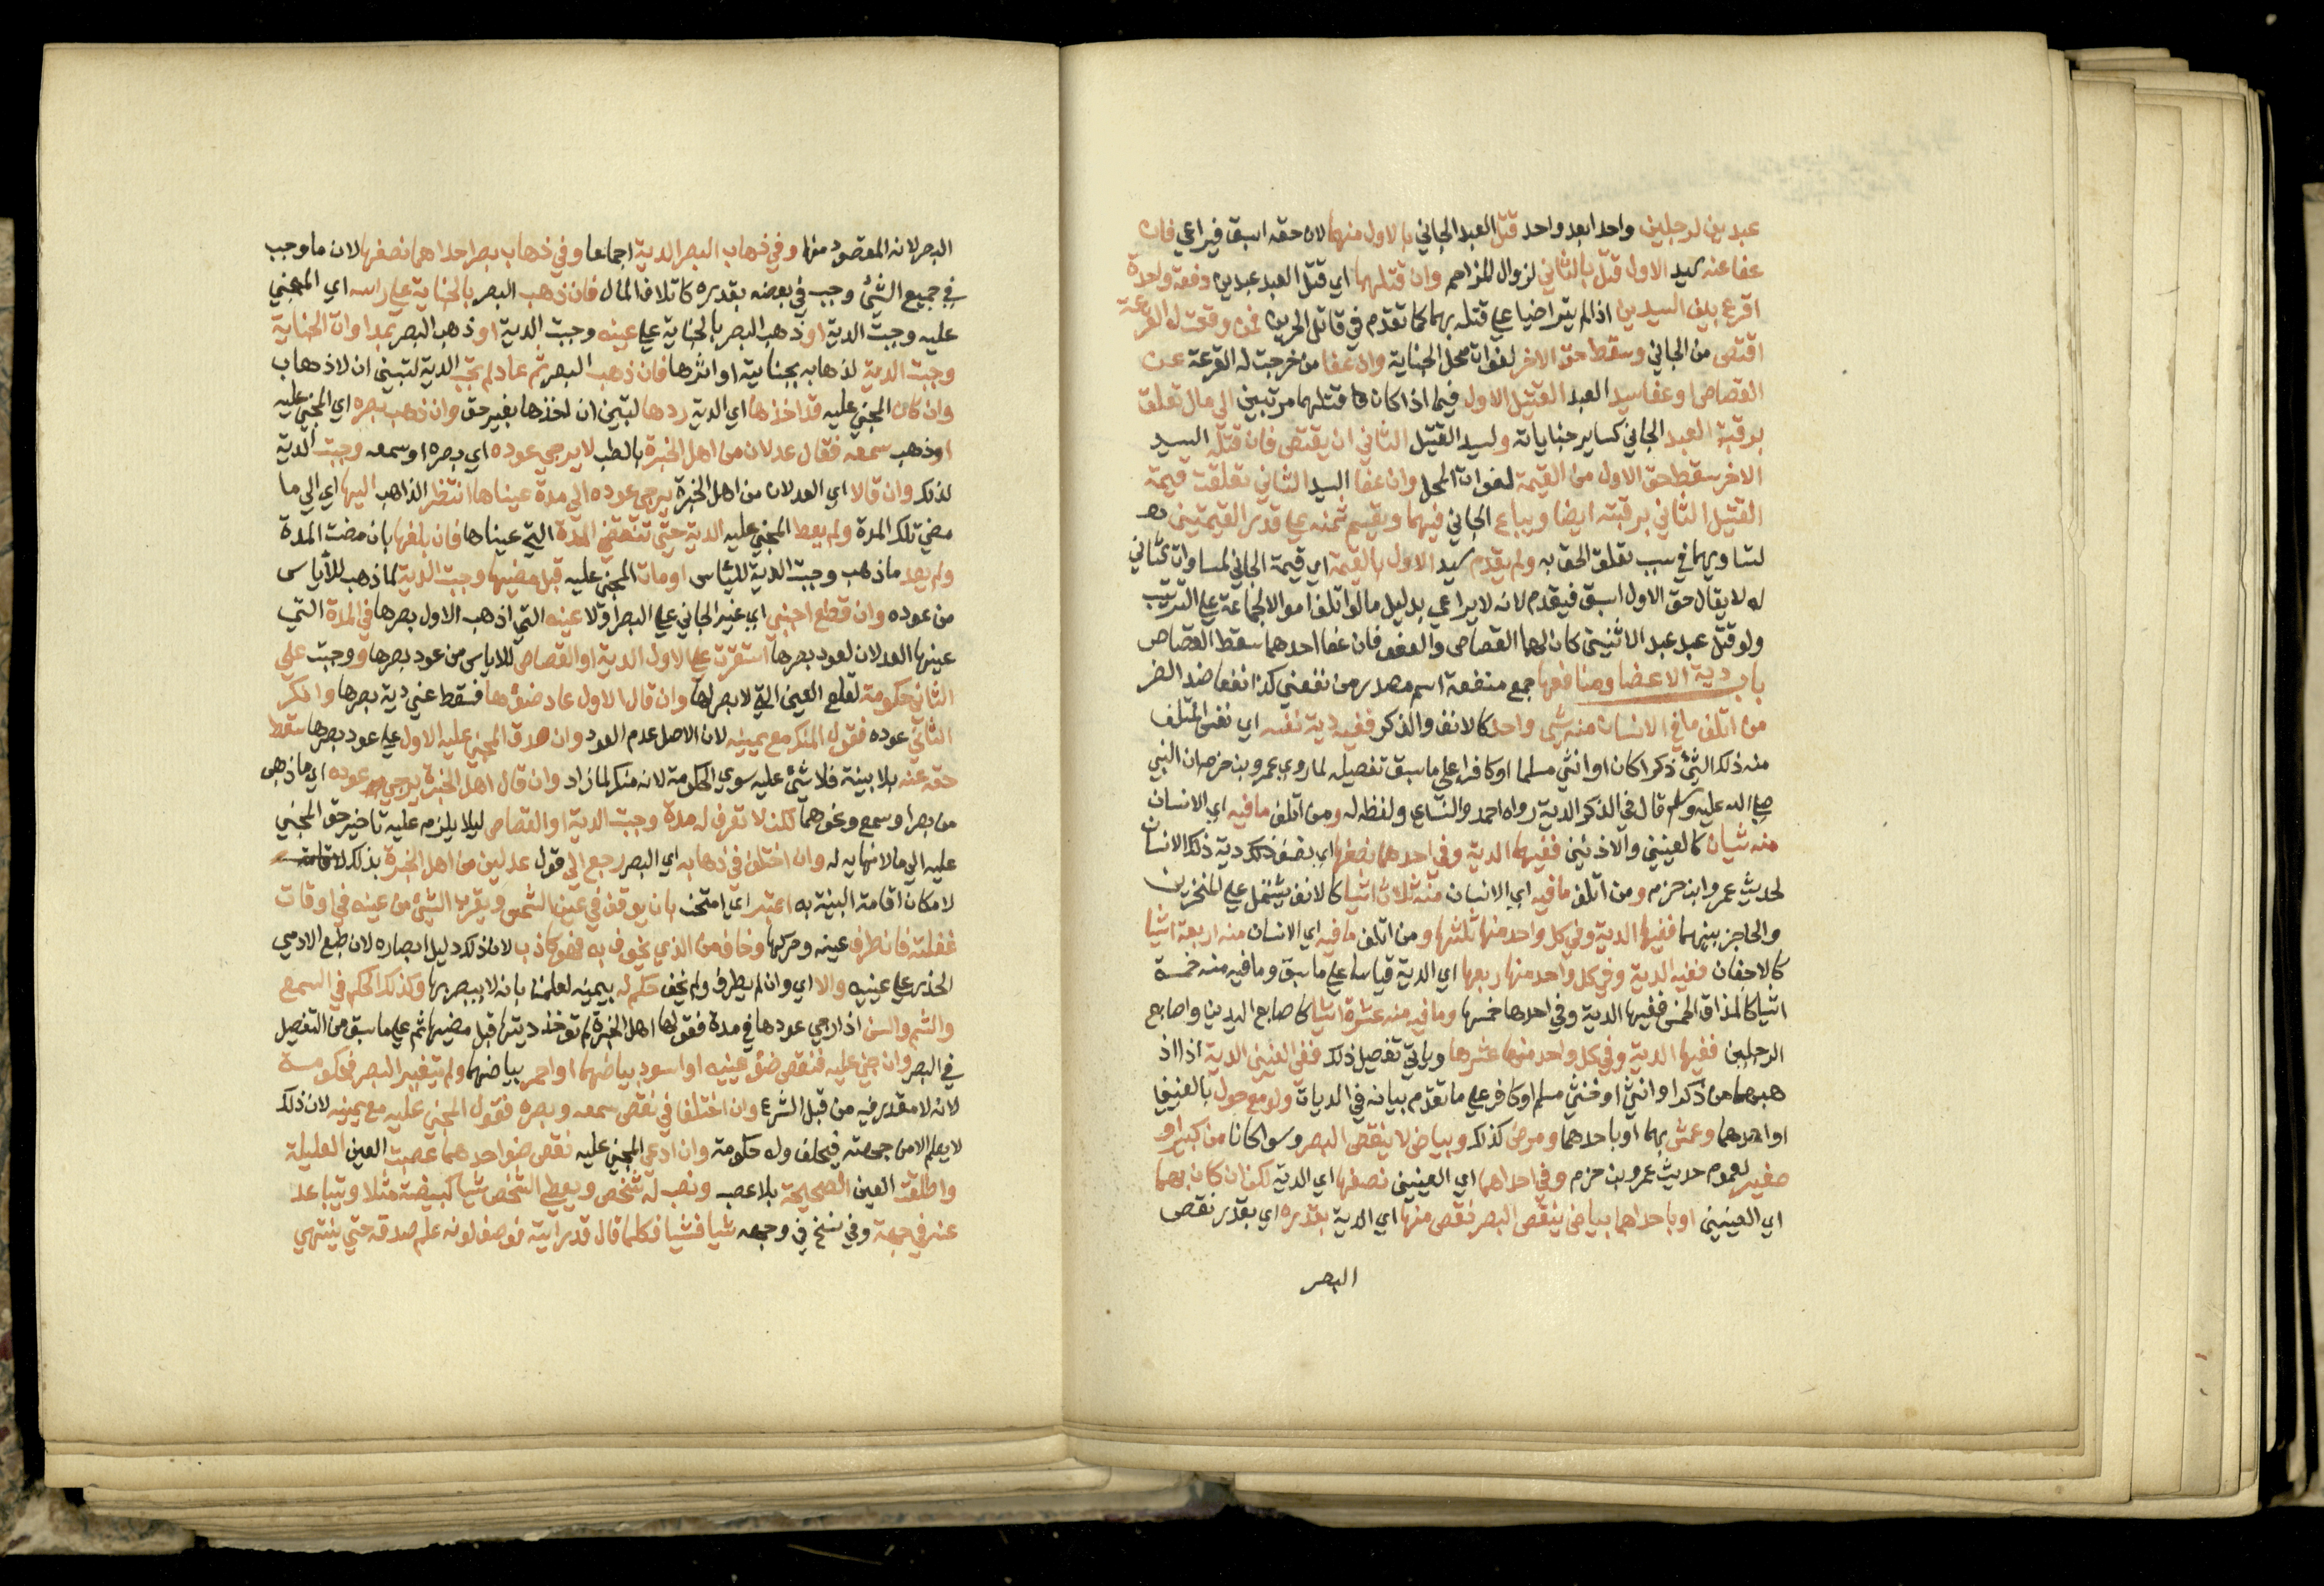 عبدين لرجلين واحدا بعد واحد قتل العبد الجاني بالاول منهما لان حقه اسبق فيراعي فان
عفا عنه سيد الاول قتل بالثاني لزوال المزاحم وان قتلهما اي قتل العبد عبدين دفعة واحدة
اقرع بين السيدين اذا لم يتراضيا علي قتله بهما كما تقدم في قاتل الحرين فمن وقعت له القرعة
اقتص من الجاني وسقط حق الاخر لفوات محل الجناية وان عفا من خرجت له القرعة عن
القصاص او عفا سيد العبد القتيل الاول فيما اذا كان قتلهما مرتبين الي مال تعلق
برقبة العبد الجاني كساير جناياته ولسيد القتيل الثاني ان يقتص فان قتله السيد
الاخر سقط حق الاول من القيمة لفوات المحل وان عفا السيد الثاني تعلقت قيمة
القتيل الثاني برقبته ايضا ويباع الجاني فيهما ويقسم ثمنه علي قدر القيمتين
لتساويهما في سبب تعلق الحق به ولم يقدم سيد الاول بالقيمة اي قيمة الجاني لمساواة الثاني
له لا يقال حق الاول اسبق فيقدم لانه لا يراعي بدليل ما لو اتلف اموالا لجماعة علي الترتيب
ولو قتل عبد عبد الاثنين كان لهما القصاص والعفو فان عفا احدهما سقط القصاص
باب دية الاعضا ومنافعها جمع منفعة اسم مصدر من نفعني كذا نفعا ضد الضر
من اتلف ما في الانسان منه شي واحد كالانف والذكر ففيه دية نفسه اي نفس المتلف
منه ذلك الشئ ذكرا كان او انثي مسلما او كافرا علي ما سبق تفصيله لما روي عمرو بن حزم ان النبي
صلي الله عليه وسلم قال في الذكر الدية رواه احمد والنساي ولفظه له ومن اتلف ما فيه اي الانسان
منه شيان كالعينين والاذنين ففيهما الدية وفي احدهما نصفها اي نصف ذلك دية ذلك الانسان
لحديث عمرو ابن حزم ومن اتلف ما فيه اي الانسان منه ثلاث اشيا كالانف يشتمل علي المنخرين
والحاجز بينهما ففيها الدية وفي كل واحد منها ثلثها ومن اتلف ما فيه اي الانسان منه اربعة اشيا
كالاجفان ففيه الدية وفي كل واحد منها ربعها اي الدية قياسا علي ما سبق وما فيه منه خمسة
اشيا كالمذاق الخمس ففيها الدية وفي احدها خمسها وما فيه منه عشرة اشيا كاصابع اليدين واصابع
الرجلين ففيها الدية وفي كل واحد منها عشرها وياتي تفصيل ذلك ففي العينين الدية اذا اذ
هبهما من ذكر او انثي او خنثي مسلم او كافر علي ما تقدم بيانه في الديات ولو مع حول بالعينين
او احدهما وعمش بهما او باحدهما ومرض كذلك وبياض لا ينقص البصر وسوا كانا من كبير او
صغير لعموم حديث عمرو بن حزم وفي احداهما اي العينين نصفها اي الدية لكن ان كان بهما
اي العينين او باحداهما بياض ينقص البصر نقص منها اي الدية بقدره اي بقدر نقص
البصر
البصر لانه المقصود منها وفي ذهاب البصر الدية اجماعا وفي ذهاب بصر احداهما نصفها لان ما وجب
في جميع الشئ وجب في بعضه بقدره كاتلاف المال فان ذهب البصر بالجناية علي راسه اي المجني
عليه وجبت الدية او ذهب البصر بالجناية علي عينه وجبت الدية او ذهب البصر بمداواة الجناية
وجبت الدية لذهابه بجنايته او اثرها فان ذهب البصر ثم عاد لم تجب الدية لتبين ان لا ذهاب
وان كان المجني عليه قد اخذها اي الدية ردها لتبين ان اخذها بغير حق وان ذهب بصره اي المجني عليه
او ذهب سمعه فقال عدلان من اهل الخبرة بالطب لا يرجي عوده اي بصره او سمعه وجبت الدية
لذلك وان قالا اي العدلان من اهل الخبرة يرجي عوده الي مدة عيناها انتظر الذاهب اليها اي الي ما
مضي تلك المدة ولم يعط المجني عليه الدية حتي تنقضي المدة التي عيناها فان بلغها بان مضت المدة
ولم يعد ما ذهب وجبت الدية للياس او مات المجني عليه قبل مضيها وجبت الدية لما ذهب للاياس
من عوده وان قطع اجنبي اي غير الجاني علي البصر اولا عينه التي اذهب الاول بصرها في المدة التي
عينها العدلان لعود بصرها استقرت علي الاول الدية او القصاص للاياس من عود بصرها ووجبت علي
الثاني حكومة لقلع العين التي لا بصر لها وان قال الاول عاد ضؤها فسقط عني دية بصرها وانكر
الثاني عوده فقول المنكر مع يمينه لان الاصل عدم العود وان صدق المجني عليه الاول علي عود بصرها سقط
حقه عنه بلا بينة فلا شئ عليه سوي الحكومة لانه منكر لما زاد وان قال اهل الخبرة يرجي عوده اي ما ذهب
من بصر او سمع ونحوهما لكن لا تعرف له مدة وجبت الدية او القصاص ليلا يلزم عليه تاخير حق المجني
عليه الي ما لا نهاية له وان اختلف في ذهابه اي البصر رجع الي قول عدلين من اهل الخبرة بذلك
لامكان اقامة البينة به اعتبر اي امتحن بان يوقف في عين الشمس ويقرب الشئ من عينه في اوقات
غفلته فان طرف عينه وحركها وخاف من الذي يخوف به فهو كاذب لان ذلك دليل ابصاره لان طبع الادمي
الحذر علي عينيه والا اي وان لم يطرف ولم يخف حكم له بيمينه لعلمنا بانه لا يبصر بها وكذلك الحكم في السمع
والشم والسن اذا رجي عودها في مدة فقولها اهل الخبرة لم توخذ ديتها قبل مضيها ثم علي ما سبق من التفصيل
في البصر وان جني عليه فنقص ضؤ عينيه او اسود بياضهما او احمر بياضهما ولم يتغير البصر فحكومة
لانه لا مقدر فيه من قبل الشرع وان اختلفا في نقص سمعه وبصره فقول المجني عليه مع يمينه لان ذلك
لا يعلم الا من جهته فيحلف وله حكومة وان ادعي المجني عليه نقص ضو احدهما عصبت العين العليلة
واطلقت العين الصحيحة بلا عصب ونصب له شخص ويعطي الشخص شيا كبيضة مثلا ويتباعد
عنه في جهة وفي نسخ في وجهه شيا فشيا فكلما قال قد رايته فوصف لونه علم صدقه حتي ينتهي